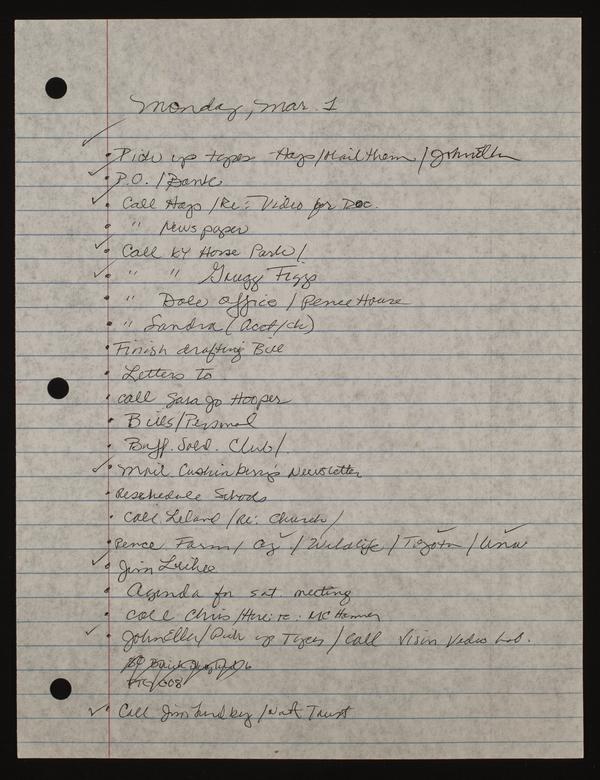 Monday, Mar. 1
Pick up types Hays/Mail them / JohnElla
P.O. / Bank
Call Hays / Re: Video for Doc.
" Newspaper
Call KY Horse Park /
" " Gregg Figgs
" Dole office / Pence House
" Sandra (Acct/ck)
Finish drafting Bill
Letters to
call Sara Jo Hooper
Bills/Personal
Buff. Sold. Club/
Mail Newsletter
Reschedule Schools
Call Leland / Re: Church /
Pence Farm / / Wildlife / /
Jim
Agenda for sat. meeting
Call Chris / re:
JohnElla / Pick up Types / Call Video Lab.
Call Jim / Nat Trust